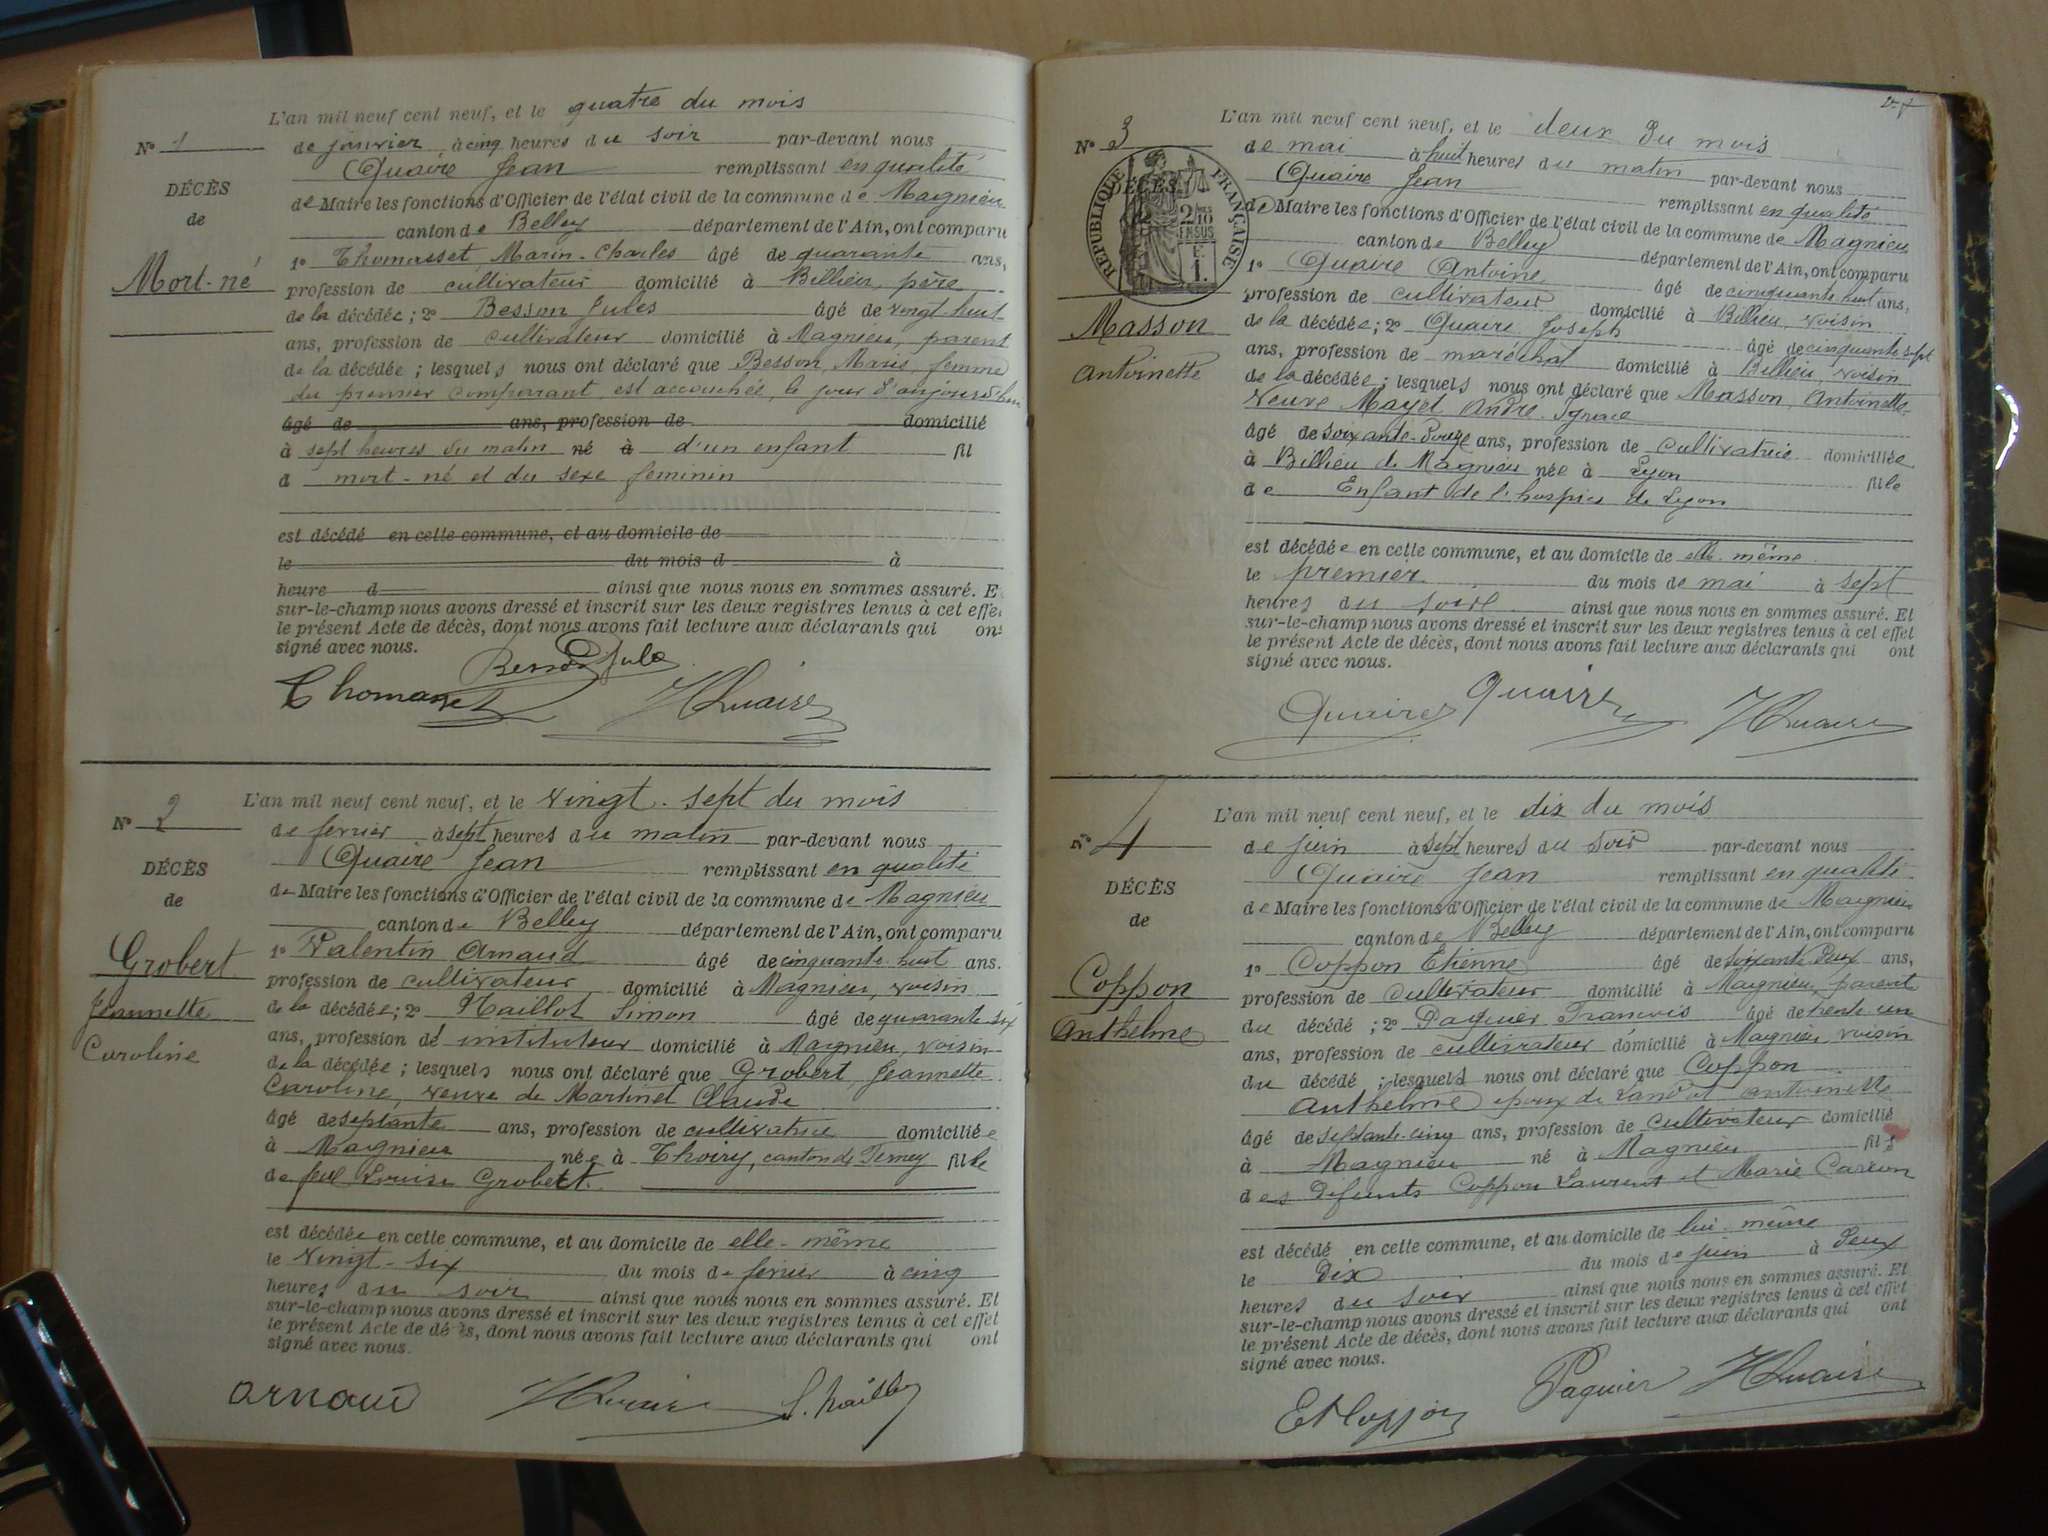 L'an mil neuf cent neuf, et le quatre du mois
N° 1 de janvier à cinq heures du soir par-devant nous
Quaire Jean remplissant en qualité
DÉCÈS
de
Mort-né
de Maire les fonctions d'Officier de l'état civil de la commune de Magnieu
canton de Belley département de l'Ain, ont comparu
1° Thomasset Marin-Charles âgé de quarante ans,
profession de cultivateur domicilié à Billieu, père
de la décédée; 2° Besson Jules âgé de vingt-huit
ans, profession de cultivateur domicilié à Magnieu, parent
de la décédée; lesquels nous ont déclaré que Besson, Marie, femme
du premier comparant, est accouchée, le jour d'aujourd'hui
âgé de ans, profession de domicilié
à sept heures du matin né à d'un enfant fil
d mort-né et du sexe feminin
est décédé en cette commune, et au domicile de
le du mois d à
heure d ainsi que nous nous en sommes assuré. E
sur-le-champ nous avons dressé et inscrit sur les deux registres tenus à cet effe
le présent Acte de décès, dont nous avons fait lecture aux déclarants qui on
signé avec nous.
Besson Jules
Thomasset JQuaire
L'an mil neuf cent neuf, et le vingt-sept du mois
N° 2 de fevrier à sept heures du matin par-devant nous
Quaire Jean remplissant en qualité
DÉCÈS
de
Grobert
Jeannette
Caroline
de Maire les fonctions d'Officier de l'état civil de la commune de Magnieu
canton de Belley département de l'Ain, ont comparu
1° Valentin Arnaud âgé de cinquante huit ans.
profession de cultivateur domicilié à Magnieu, voisin
de la décédée; 2° Naillot Simon âgé de quarante-six
ans, profession de instituteur domicilié à Magnieu, voisin
de la décédée; lesquels nous ont déclaré que Grobert Jeannette
Caroline, veuve de Martinet Claude
âgé de septante ans, profession de cultivatrice domiciliée
à Magnieu née à Thoiry, canton de Ferney fille
de feue Louise Grobert.
est décédée en cette commune, et au domicile de elle-même
le vingt-six du mois de fevrier à cinq
heures du soir ainsi que nous nous en sommes assuré. Et
sur-le-champ nous avons dressé et inscrit sur les deux registres tenus à cet effet
le présent Acte de décès, dont nous avons fait lecture aux déclarants qui ont
signé avec nous.
arnaud JQuaire
L'an mil neuf cent neuf, et le deux du mois
N° 3 de mai à huit heures du matin par-devant nous
Quaire Jean remplissant en qualité
DÉCÈS
RÉPUBLIQUE FRANÇAISE
2/10 EN SUS
Masson
Antoinette
de Maire les fonctions d'Officier de l'état civil de la commune de Magnieu
canton de Belley département de l'Ain, ont comparu
1° Quaire Antoine âgé de cinquante huit ans,
profession de cultivateur domicilié à Billieu, voisin
de la décédée; 2° Quaire Joseph âgé de cinquante sept
ans, profession de maréchal domicilié à Billieu, voisin
de la décédée; lesquels nous ont déclaré que Masson, Antoinette
veuve Mayet André-Ignace
âgé de soixante-douze ans, profession de cultivatrice domiciliée
à Billieu de Magnieu née à Lyon fille
de Enfant de l'hospice de Lyon
est décédée en cette commune, et au domicile de elle-même
le premier du mois de mai à sept
heures du soir ainsi que nous nous en sommes assuré. Et
sur-le-champ nous avons dressé et inscrit sur les deux registres tenus à cet effet
le présent Acte de décès, dont nous avons fait lecture aux déclarants qui ont
signé avec nous.
Quaire Quaire JQuaire
L'an mil neuf cent neuf, et le dix du mois
N° 4 de juin à sept heures du soir par-devant nous
Quaire Jean remplissant en qualité
DÉCÈS
de
Coppon
Anthelme
de Maire les fonctions d'Officier de l'état civil de la commune de Magnieu
canton de Belley département de l'Ain, ont comparu
1° Coppon Etienne âgé de soixante-deux ans,
profession de cultivateur domicilié à Magnieu, parent
du décédé; 2° Paquier François âgé de trente un
ans, profession de cultivateur domicilié à Magnieu, voisin
du décédé; lesquels nous ont déclaré que Coppon
Anthelme époux de Landot Antoinette
âgé de septante-cinq ans, profession de cultivateur domicilié
à Magnieu né à Magnieu fils
des défunts Coppon Laurent et Marie Carron
est décédé en cette commune, et au domicile de lui-même
le dix du mois de juin à deux
heures du soir ainsi que nous nous en sommes assuré. Et
sur-le-champ nous avons dressé et inscrit sur les deux registres tenus à cet effet
le présent Acte de décès, dont nous avons fait lecture aux déclarants qui ont
signé avec nous.
Et Coppon Paquier JQuaire